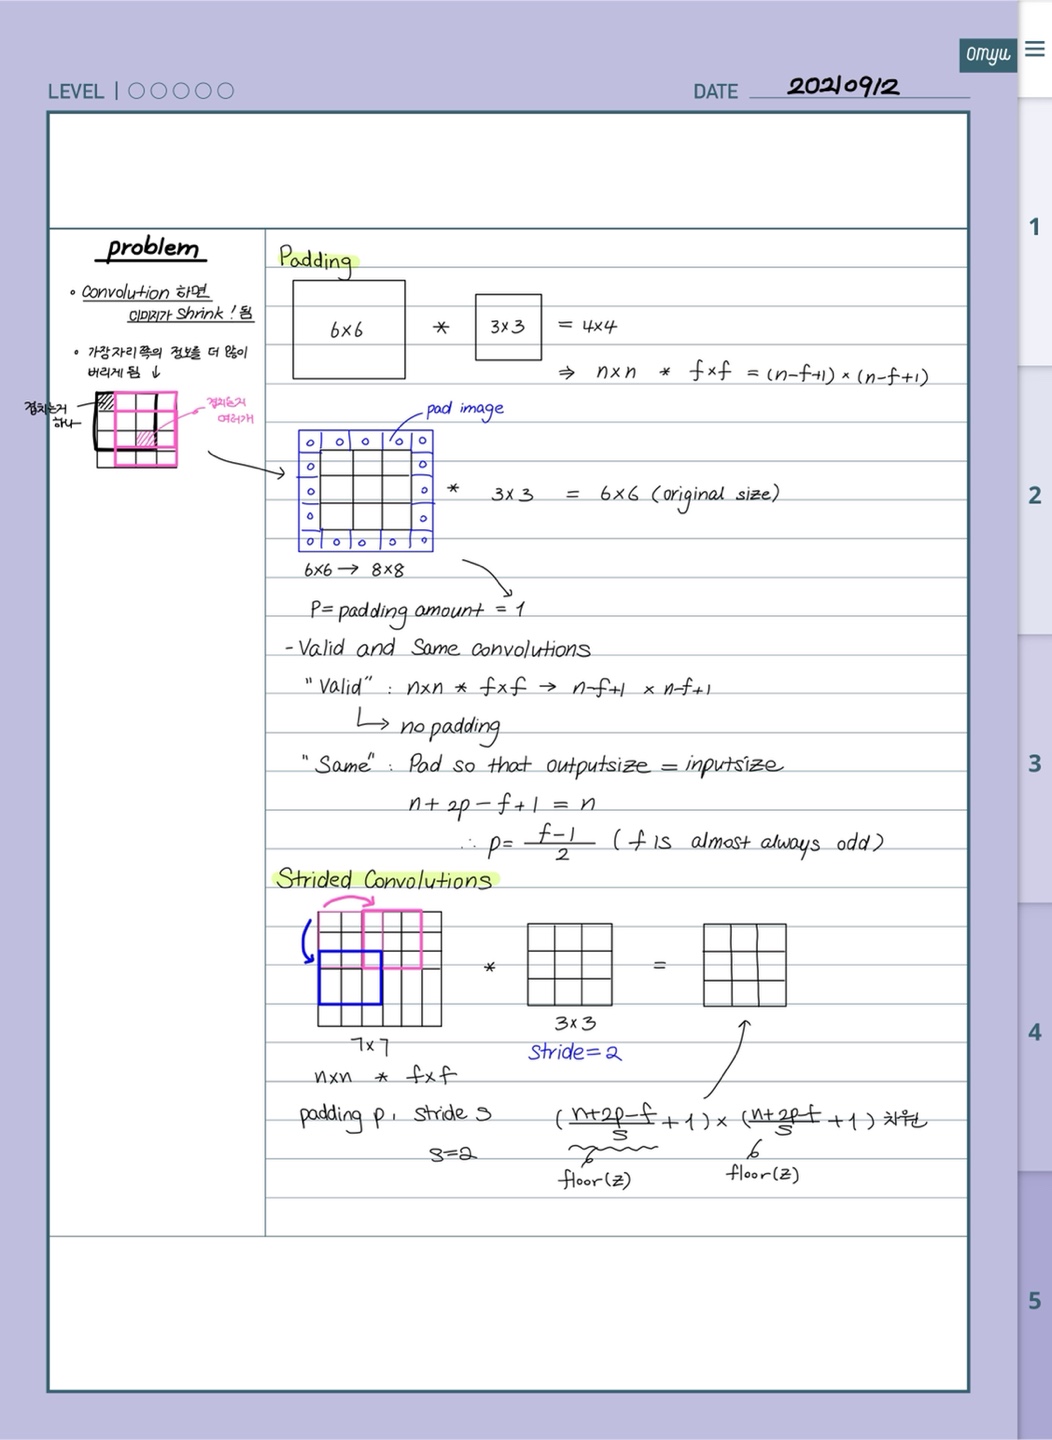 omyu
LEVEL
DATE 20210912
problem
• Convolution 하면
이미지가 Shrink! 됨
• 가장자리쪽의 정보를 더 많이
버리게 됨 ↓
겹치는거
하나
겹치는거
여러개
Padding
6×6 * 3×3 = 4×4
⇒ n×n * f×f = (n-f+1) × (n-f+1)
pad image
0 0 0 0 0
0 0
0 0
0 0
0 0 0 0 0
* 3×3 = 6×6 (original size)
6×6 → 8×8
P = padding amount = 1
- Valid and Same convolutions
"Valid" : n×n * f×f → n-f+1 × n-f+1
↳ no padding
"Same" : Pad so that outputsize = inputsize
n + 2p - f + 1 = n
∴ p = (f-1)/2 (f is almost always odd)
Strided Convolutions
* =
7×7
3×3
Stride = 2
n×n * f×f
padding p, stride s
s=2
((n+2p-f)/s + 1) × ((n+2p-f)/s + 1) 차원
floor(z)
floor(z)
1
2
3
4
5